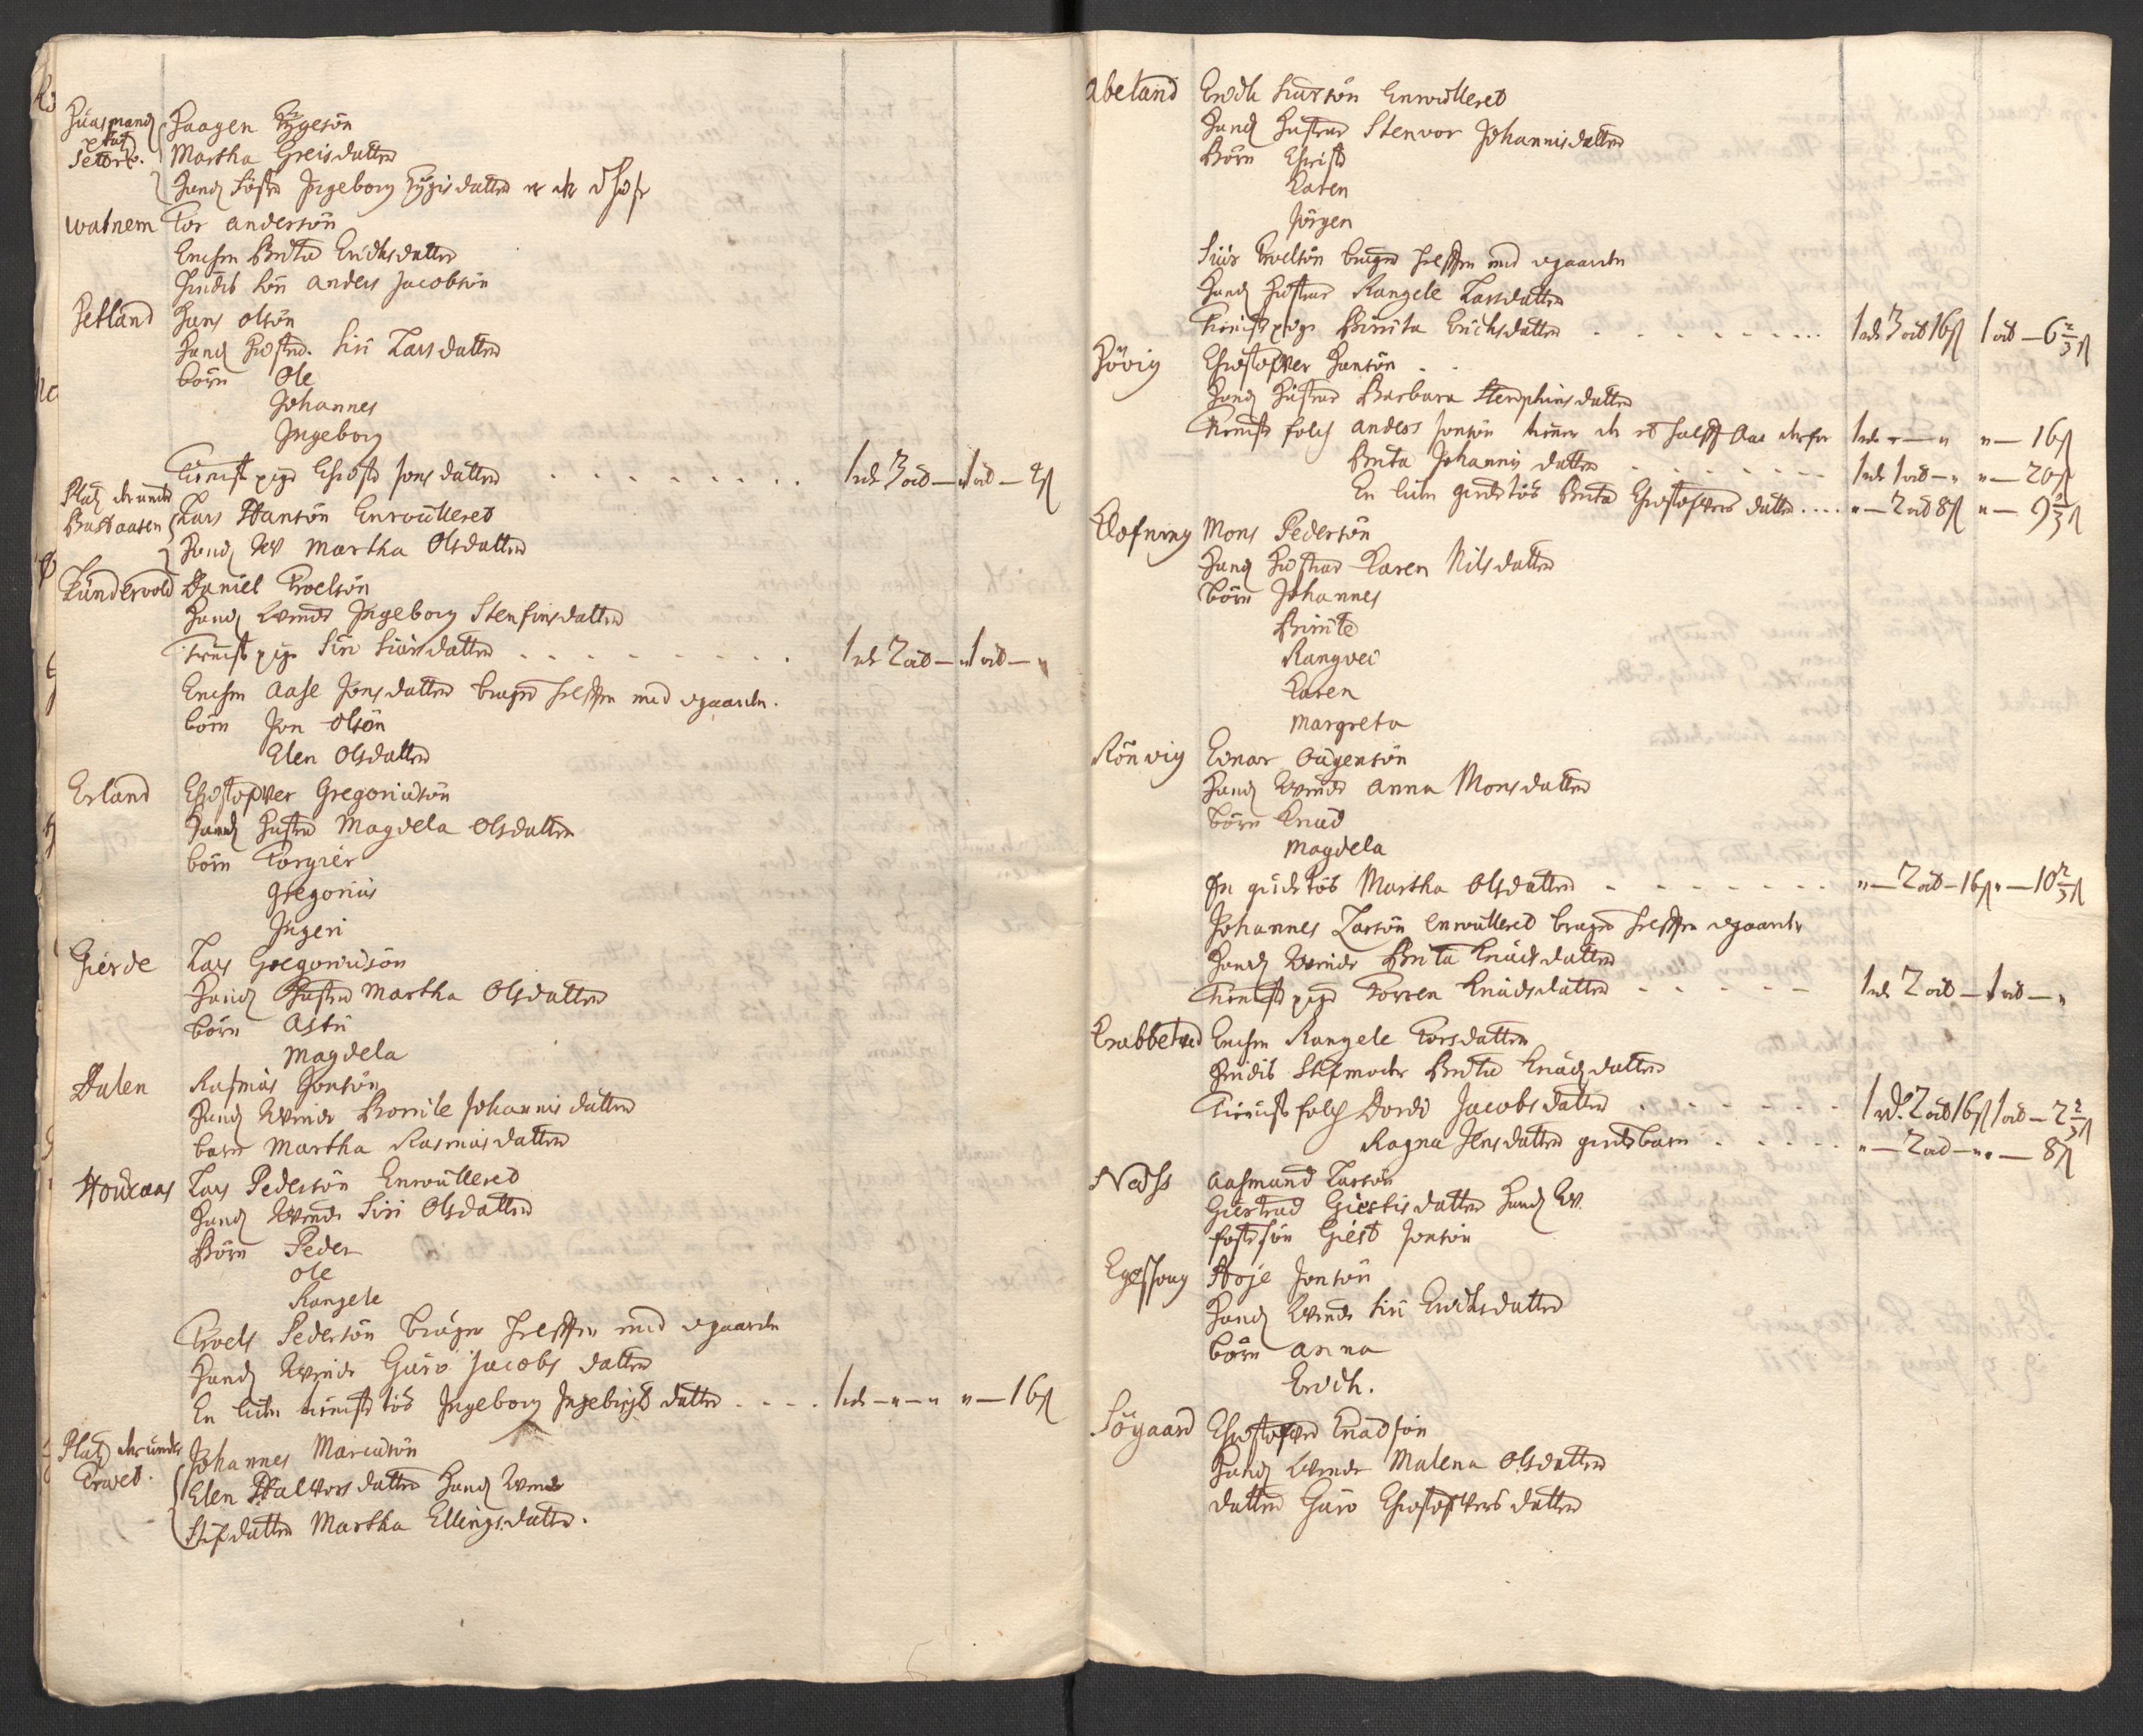 Huusmand Haagen Tygesøn
Plads
Setore. Martha Greisdatter
Hands Søster Ingeborg Tygisdatter
Watnem Tor Andersøn
Enchen Brita Erichsdatter
Hendis Søn Anders Jacobsøn
Hetland Hans Olsøn
Hands Hustru Siri Larsdatter
børn Ole
Johannes
Ingeborg
Tienist pige Christi Jonsdatter . . . . . . . . 1 rdr 3 ort — 1 ort — 4 s
Plads der under
Bastaasen Lars Hansøn Enroulleret
Hands W Martha Olsdatter
Lundervold Daniel Troelsøn
Hands Qvinde Ingeborg Stenfinsdatter
Tienist pige Siri Siursdatter . . . . . . . . 1 rdr 2 ort — 1 ort — "
Enchen Aase Jonsdatter bruger helften med i gaarden.
børn Jon Olsøn
Elen Olsdatter
Erland Christopher Gregoriusøn
Hands Hustru Magdela Olsdatter
børn Torgier
Gregorius
Ingeri
Gierde Lars Gregoriusøn
Hands Hustru Martha Olsdatter
børn Astri
Magdela
Dalen Rasmus Jonsøn
Hands Qvinde Borrite Johannisdatter
barn Martha Rasmusdatter
Houkaas Lars Pedersøn Enroulleret
Hands Qvinde Siri Olsdatter
Børn Peder
Ole
Rangele
Troels Pedersøn bruger helften med i gaarden
Hands Qvinde Guro Jacobs datter
En liden tieniste tøs Ingeborg Ingebrigts datter . . . . 1 rdr — " — " " — 16 s
Plads der under Johannes Mariusøn
Trævet. Elen Halvors datter Hands Qvinde
Stifdatter Martha Ellingsdatter.
Abeland Erich Siursøn Enroulleret
Hands Hustrue Stenvor Johannisdatter
Børn Christi
Karen
Jørgen
Siur Troelsøn bruger helften med i gaarden
Hands Hustrue Rangele Larsdatter
Tienist pige Birrita Erichsdatter . . . . . . . . 1 rdr 3 ort 16 s 1 ort — 6 2/3 s
Høvig Christopher Hansøn . .
Hands Hustrue Barbara Stenphinsdatter
Tieniste folch Anders Jonsøn tiener der et halft Aar derfor 1 rdr — " — " " — 16 s
Brita Johannis datter . . . . . . . 1 rdr 1 ort — " " — 20 s
En liden giedetøs Brita Christophers datter . . . . " — 2 ort 8 s " — 9 2/3 s
Kløfning Mons Pedersøn
Hands Hustrue Karen Nilsdatter
børn Johannes
Birrite
Rangvei
Karen
Margreta
Rønvig Einar Ougensøn
Hands Qvinde Anna Monsdatter
børn Knud
Magdela
En giedetøs Martha Olsdatter . . . . . . . " — 2 ort — 16 s " — 10 2/3 s
Johannes Larsøn enroulleret bruger helften i gaarden
Hands Qvinde Brita Knudsdatter
Tieniste pige Torren Knudsdatter . . . . . 1 rdr 2 ort — 1 ort — "
Krabbetved Enchen Rangele Torsdatter
Hendis Stifmoder Brita Knudsdatter
Tieniste folch Dordi Jacobsdatter . . . . . . 1 rdr 2 ort 16 s 1 ort — 2 2/3 s
Ragna Jensdatter giedebarn . . . . . " — 2 ort — " " — 8 s
Næss Aasmund Larsøn
Giertrud Giestis datter Hands W.
Fostersøn Giest Jonsøn
Egessong Hoje Jonsøn
Hands Qvinde Siri Erichsdatter
børn Anna
Erich.
Søgaard Christopher Knudsøn
Hands Qvinde Malena Olsdatter
datter Guro Christophers datter